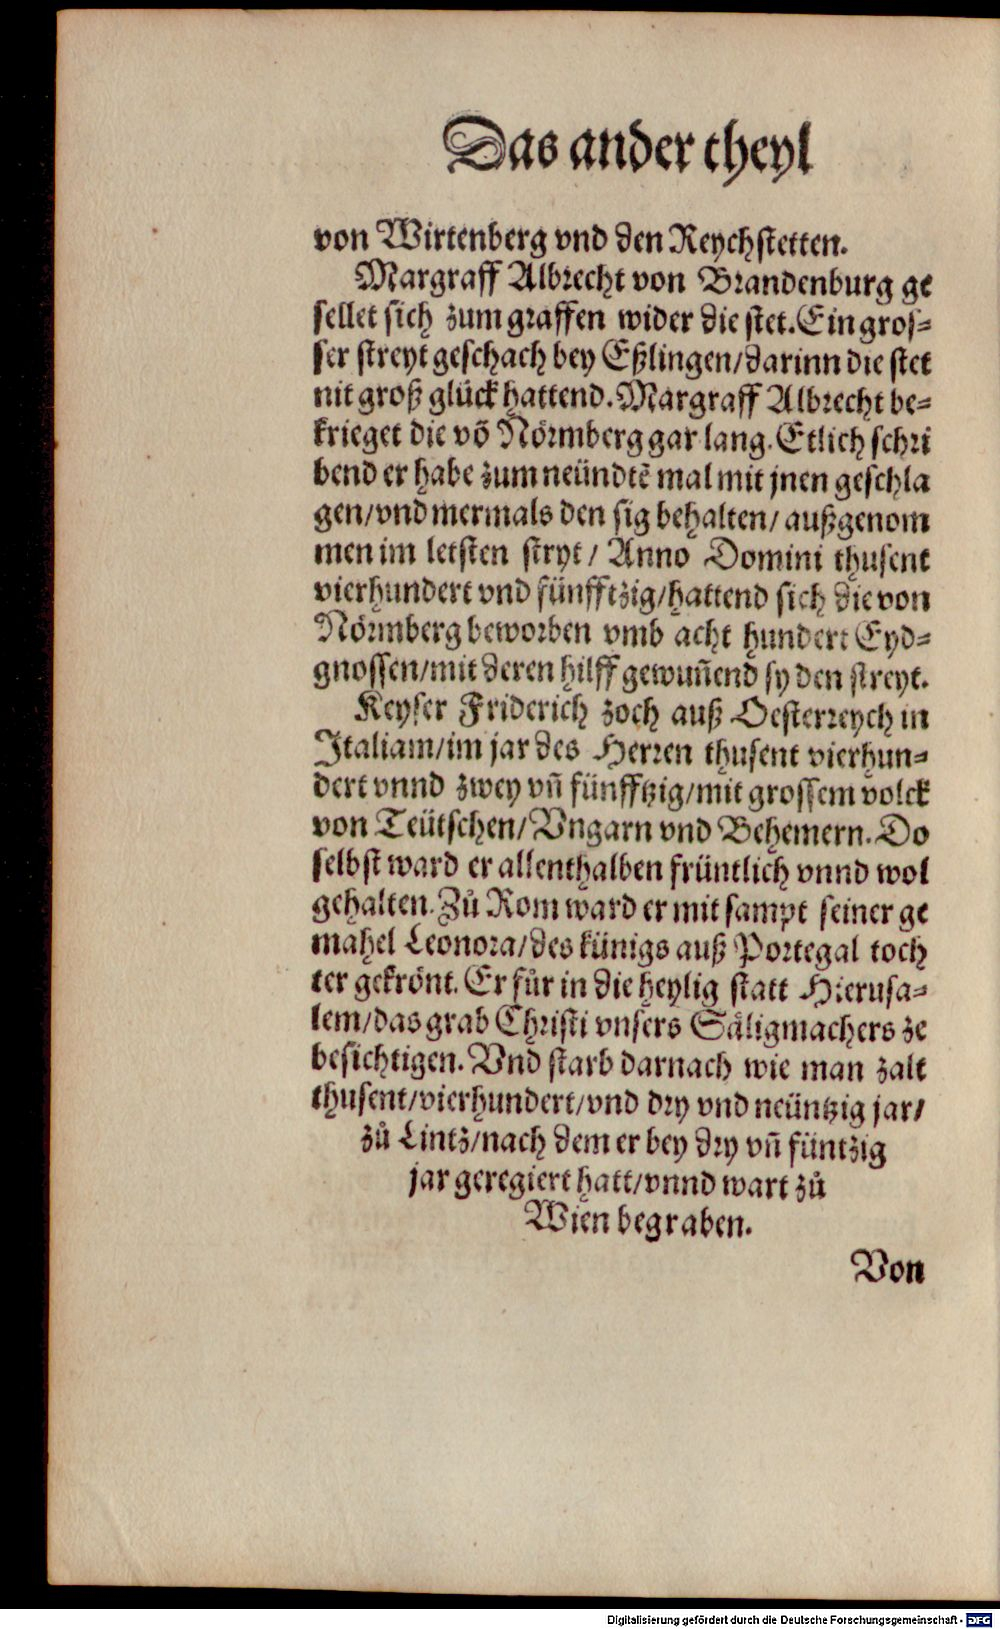 Das ander theyl
von Wirtenberg vnd den Reychstetten.
Margraff Albrecht von Brandenburg ge
sellet sich zum graffen wider die stet. Ein gros⸗
ser streyt geschach bey Eßlingen/darinn die stet
nit groß glück hattend. Margraff Albrecht be⸗
krieget die võ Nörmberg gar lang. Etlich schri
bend er habe zum neündtẽ mal mit jnen geschla
gen/vnd mermals den sig behalten/ außgenom
men im letsten stryt/ Anno Domini thusent
vierhundert vnd fünfftzig/hattend sich die von
Nörmberg beworben vmb acht hundert Eyd⸗
gnossen/mit deren hilff gewuñend sy den streyt.
Keyser Friderich zoch auß Oesterreych in
Italiam/im jar des Herren thusent vierhun⸗
dert vnnd zwey vñ fünfftzig/mit grossem volck
von Teütschen/Vngarn vnd Behemern. Do
selbst ward er allenthalben früntlich vnnd wol
gehalten. Zů Rom ward er mit sampt seiner ge
mahel Leonora/des künigs auß Portegal toch
ter gekrönt. Er für in die heylig statt Hierusa⸗
lem/das grab Christi vnsers Säligmachers ze
besichtigen. Vnd starb darnach wie man zalt
thusent/vierhundert/vnd dry vnd neüntzig jar/
zů Lintz/nach dem er bey dry vñ füntzig
jar geregiert hatt/vnnd wart zů
Wien begraben.
Von
Digitalisierung gefördert durch die Deutsche Forschungsgemeinschaft - DFG